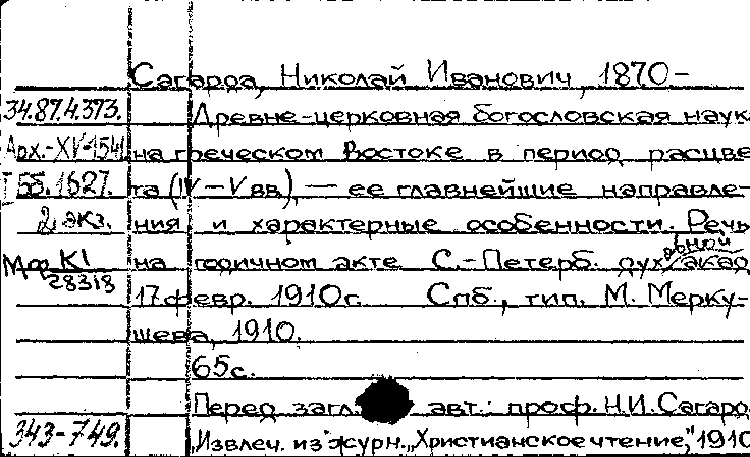 Сагарда, Николай Иванович, 1870-
34.87.4.373. Древне-церковная богословская наук
Арх.-XV-1541 на греческом Востоке в период расцве
I 55.1627. та (IV-V вв.), — ее главнейшие направле-
2 экз. ния и характерные особенности. Речь
Мф K1 28318 на годичном акте С.-Петерб. духовной акад
17 февр. 1910г. Спб., тип. М. Мерку-
шева, 1910.
65с.
Перед загл. авт.: проф. Н.И. Сагард
343-749. Извлеч. из журн. „Христианское чтение," 1910